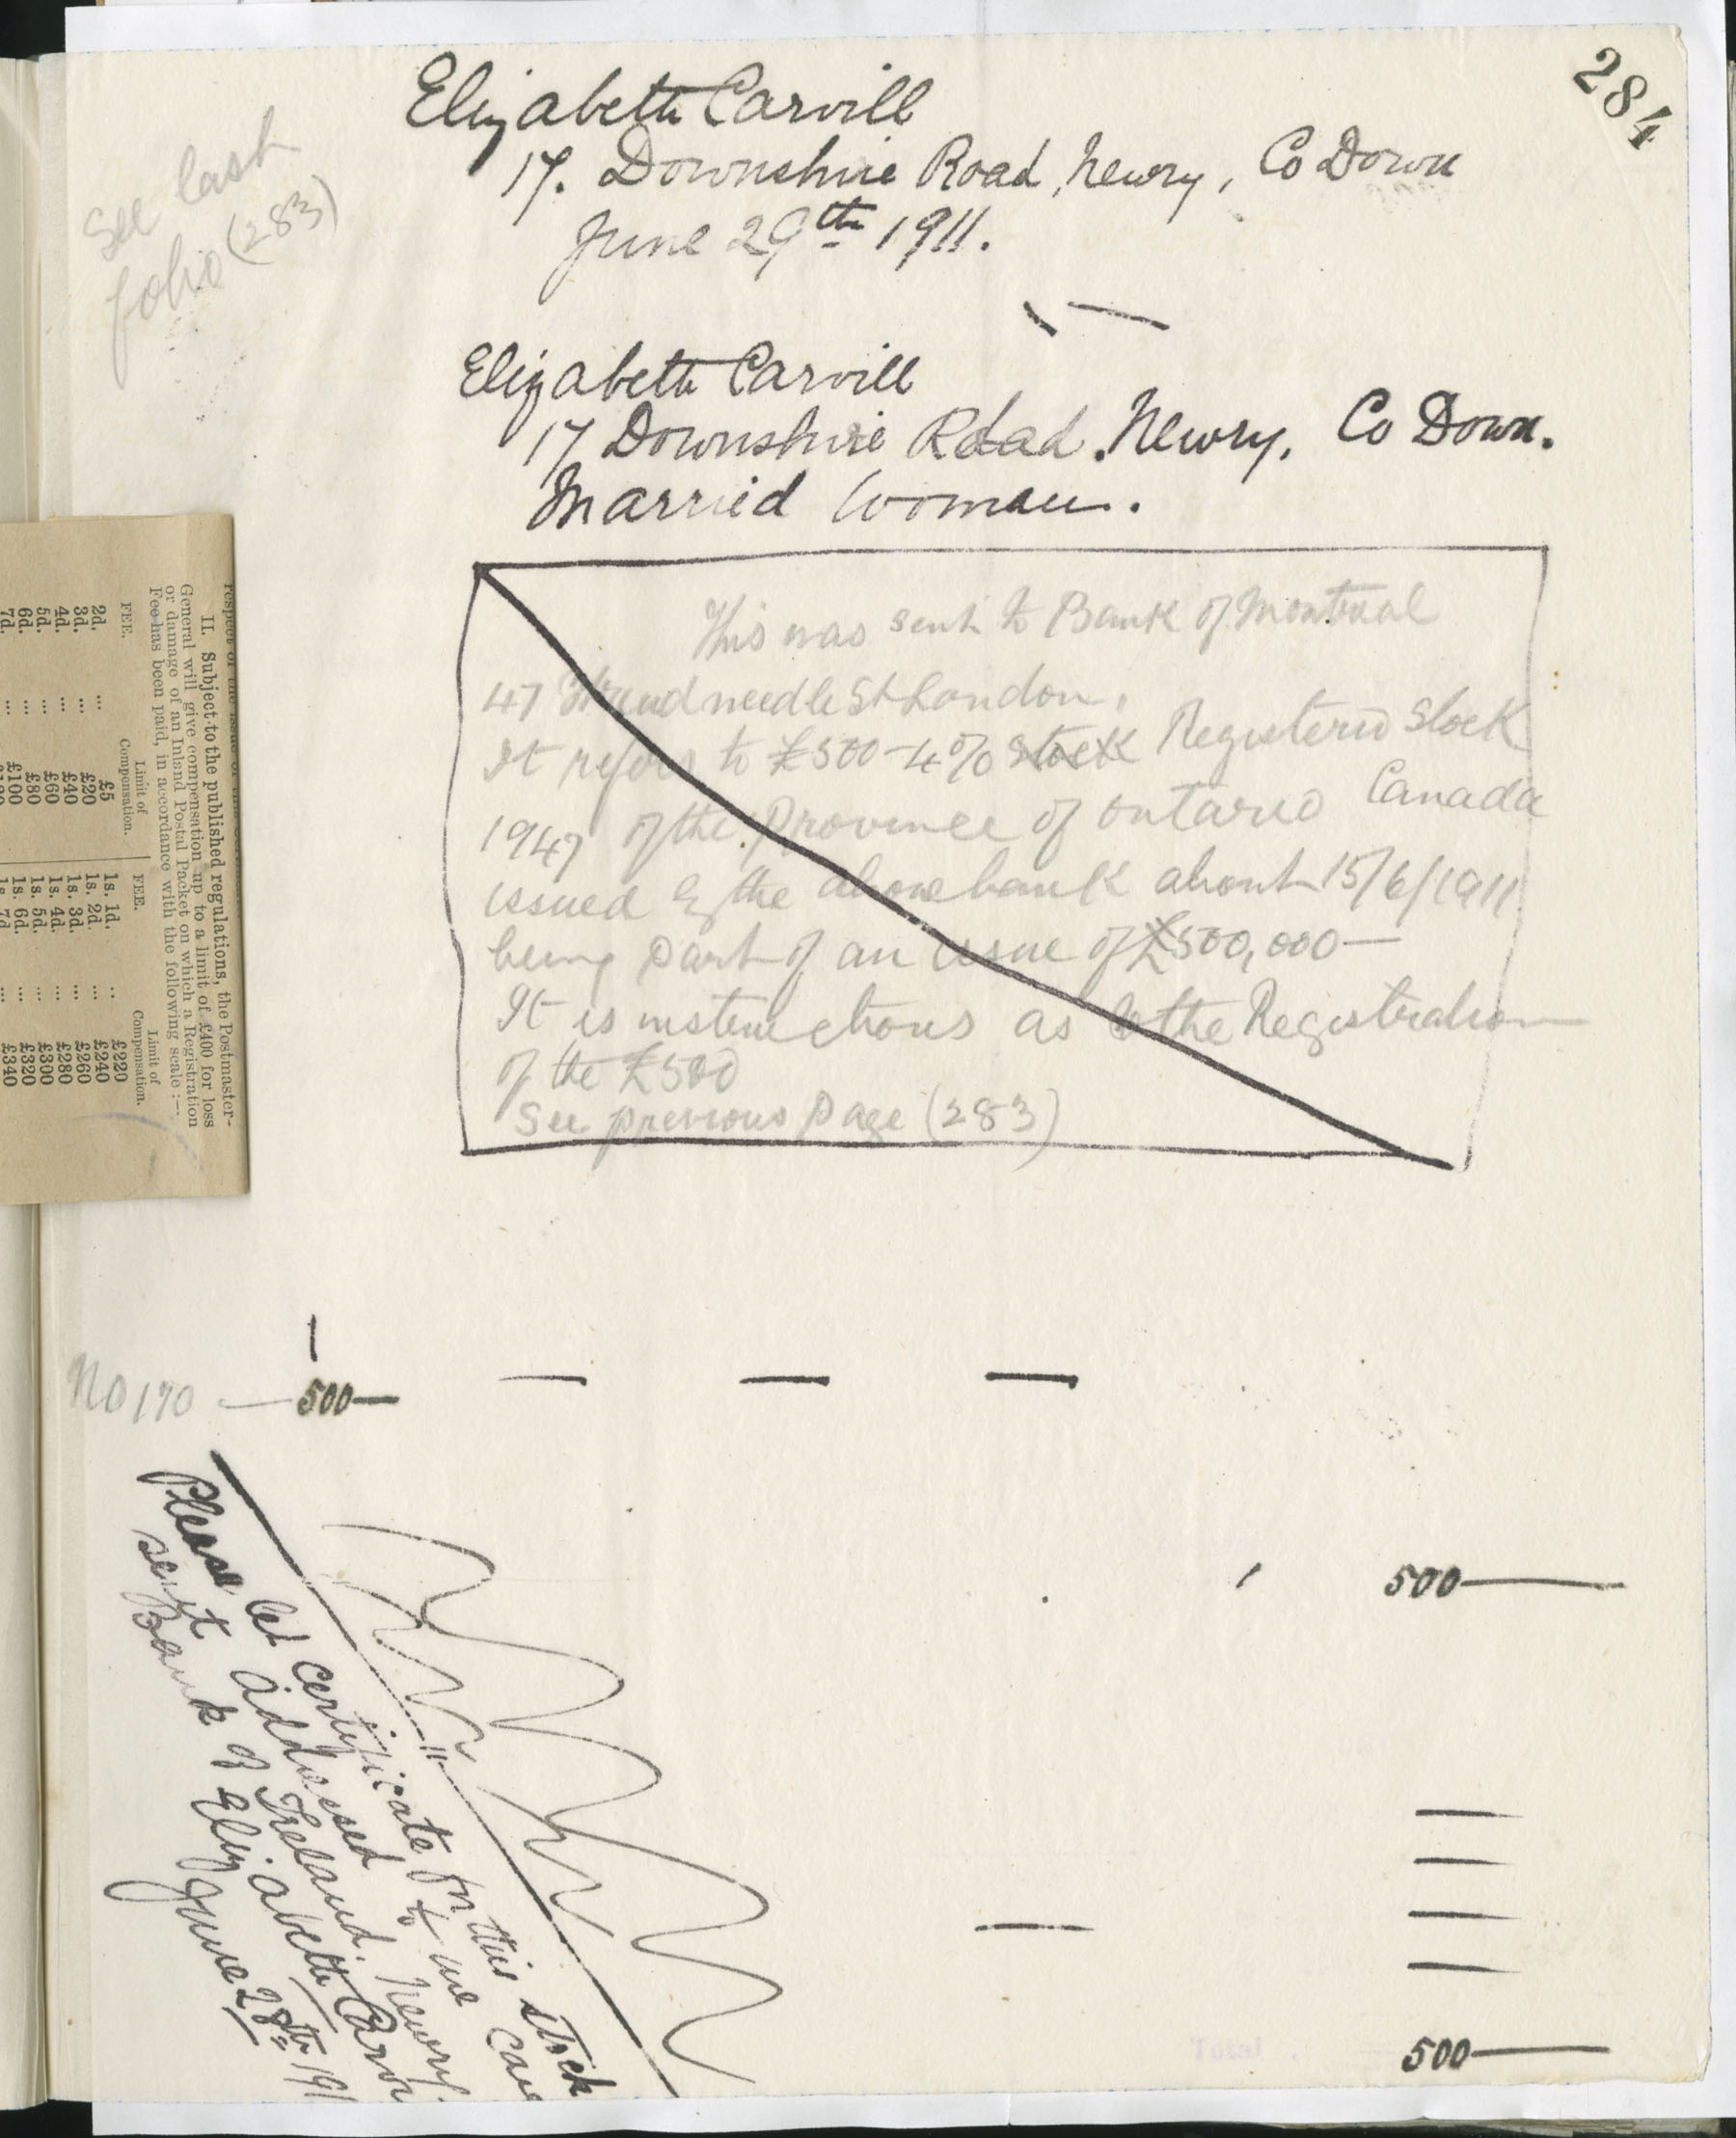 284
See last
folio (283)
Elizabeth Carvill
17. Downshire Road, Newry, Co Down
June 29th 1911.
Elizabeth Carvill
17 Downshire Road. Newry. Co Down.
Married Woman.
This was sent to Bank of Montreal
47 Threadneedle St London.
It refers to £500-4% stock Registered Stock
1947 of the Province of Ontario Canada
issued by the above bank about 15/6/1911
being part of an issue of £500,000—
It is instructions as to the Registration
of the £500
See previous page (283)
respect of the issue of
II. Subject to the published regulations, the Postmaster-
General will give compensation up to a limit of £400 for loss
or damage of an Inland Postal Packet on which a Registration
Fee has been paid, in accordance with the following scale :—
FEE. Limit of Compensation. FEE. Limit of Compensation.
2d. ... £5 1s. 1d. ... £220
3d. ... £20 1s. 2d. ... £240
4d. ... £40 1s. 3d. ... £260
5d. ... £60 1s. 4d. ... £280
6d. ... £80 1s. 5d. ... £300
7d. ... £100 1s. 6d. ... £320
1s. 7d. ... £340
No 170 — 500—
500—
Please let certificate for this stock
sent addressed to me care
Bank of Ireland. Newry.
Elizabeth Carvi
June 28th 191
Total
500—